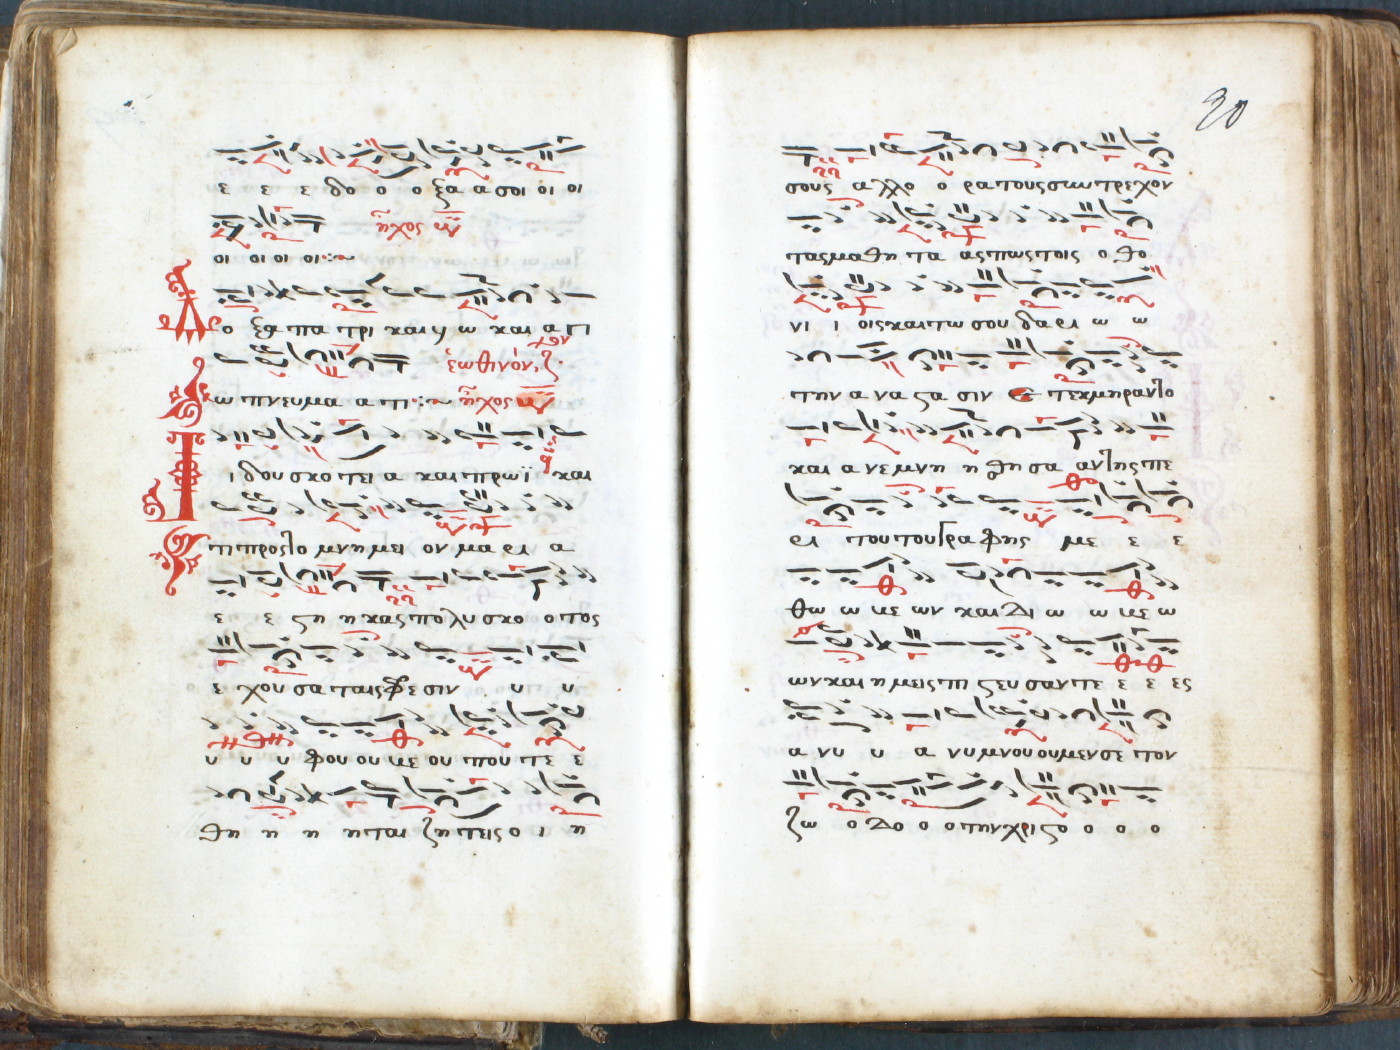 ε ε ε δο ο ο ξα α σοι οι οι
ἦχος
οι οι οι οι
Δο ξα πα τρι και υ ω και α γι
ἑωθινὸν ζ
ω πνευμα α τι ἦχος
Ι ι δου σκο τει α και πρωϊ και
τι προς το μνημει ον μα ρι α
ε ε ςη η κας πο λυ σκο ο τος
ε χου σα ταις φρε σιν υ υ
υ υ υ φου ου με ου που τε ε
θη η η η ται ζη τεις ο ι η
30
σους αλλ ο ο ρα τους συν τρεχον
τας μαθη τα ας πως τοις ο θο
νι ι οις και τω σου δα ρι ω ω
την α να ςα σιν ε τεκμηραντο
και α νε μνη η θη σα αν της πε
ρι του του γρα φης με ε ε
θω ω με ων και δι ω ω με ω
ων και η μεις πι ςευ σαν τε ε ε ες
α νυ υ α νυ μνου ου μεν σε τον
ζω ο δο ο ο την χρι ςο ο ο ο